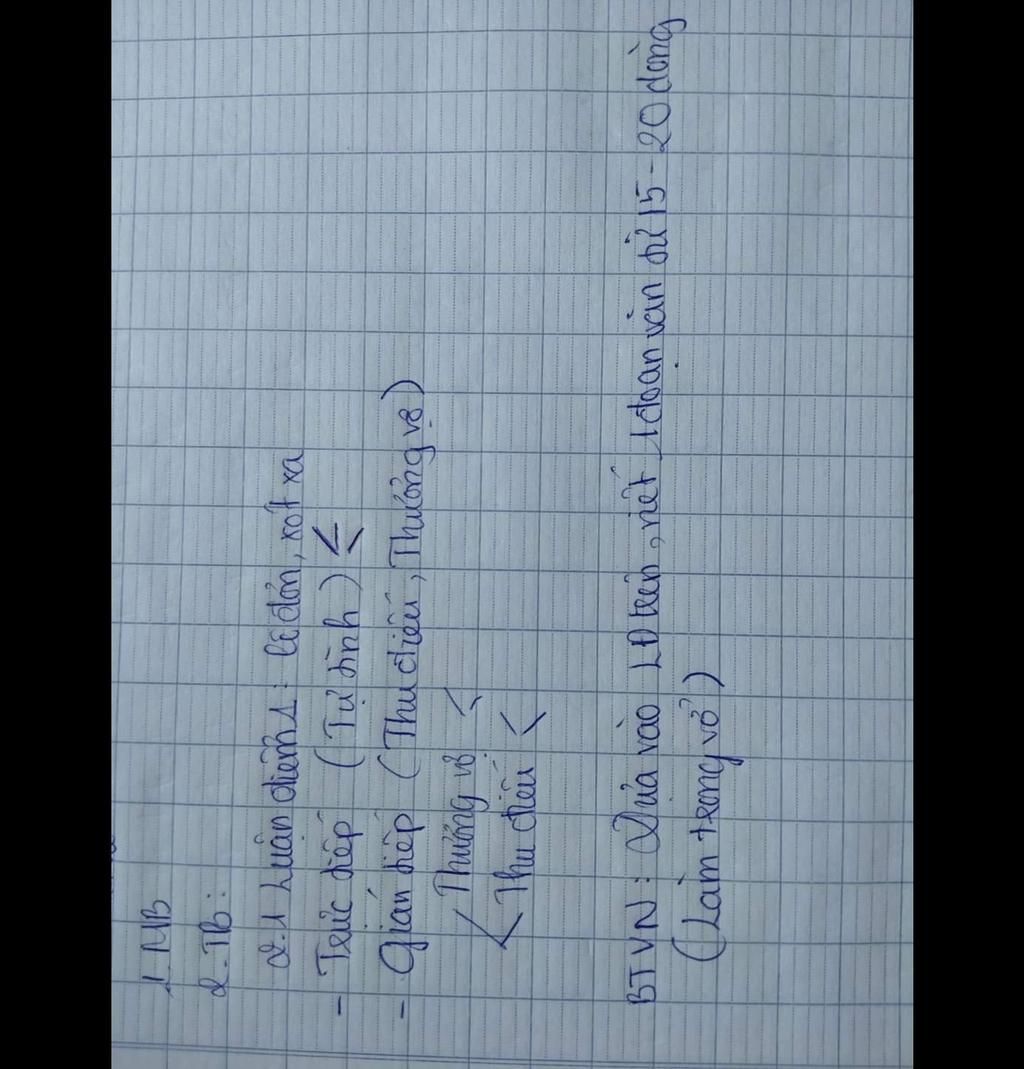 1. MB
2. TB:
2.1 Luận điểm 1: lẻ đơn, xót xa
- Trực tiếp (Tự tình) <
- Gián tiếp (Thu điếu, Thương vợ)
< Thương vợ <
Thu điếu <
BTVN: Dựa vào LĐ trên, viết 1 đoạn văn từ 15 - 20 dòng
(Làm trong vở)